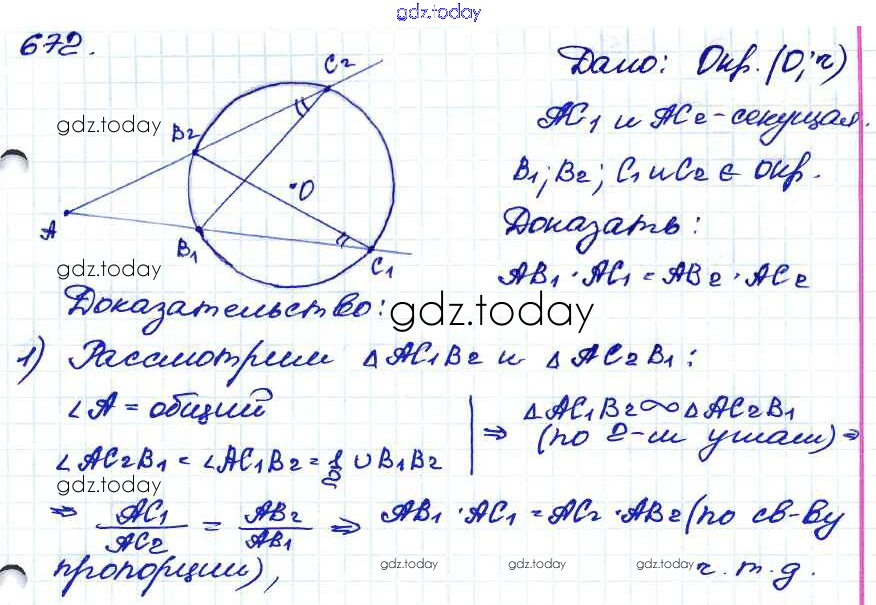 gdz.today
672.
C2
B2
O
A
B1
C1
gdz.today
Дано: Окр. (O; r)
AC1 и AC2 - секущая.
B1; B2; C1 и C2 ∈ окр.
Доказать:
AB1 · AC1 = AB2 · AC2
gdz.today
Доказательство:
gdz.today
1) Рассмотрим △AC1B2 и △AC2B1:
∠A = общий
∠AC2B1 = ∠AC1B2 = 1/2 ∪B1B2
⇒ △AC1B2 ∾ △AC2B1
(по 2-м углам) ⇒
gdz.today
⇒ AC1/AC2 = AB2/AB1 ⇒ AB1 · AC1 = AC2 · AB2 (по св-ву
пропорции),
ч.т.д.
gdz.today
gdz.today
gdz.today